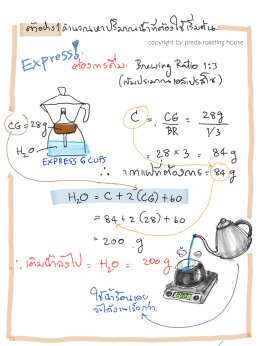 ตัวอย่าง 1 คำนวณหาปริมาณน้ำที่ต้องใช้เริ่มต้น
copyright by preda roasting house
Express!
ต้องการดื่ม Brewing Ratio 1:3
CG = 28g
H₂O
EXPRESS 6 CUPS
C = CG/BR = 28g/1/3
= 28 × 3 = 84 g
∴ กาแฟที่ต้องการ = 84 g
H₂O = C + 2(CG) + 60
= 84 + 2(28) + 60
= 200 g
∴ เติมน้ำลงไป = H₂O = 200 g
ใช้น้ำร้อนเลย
จะได้งานเร็วกว่า